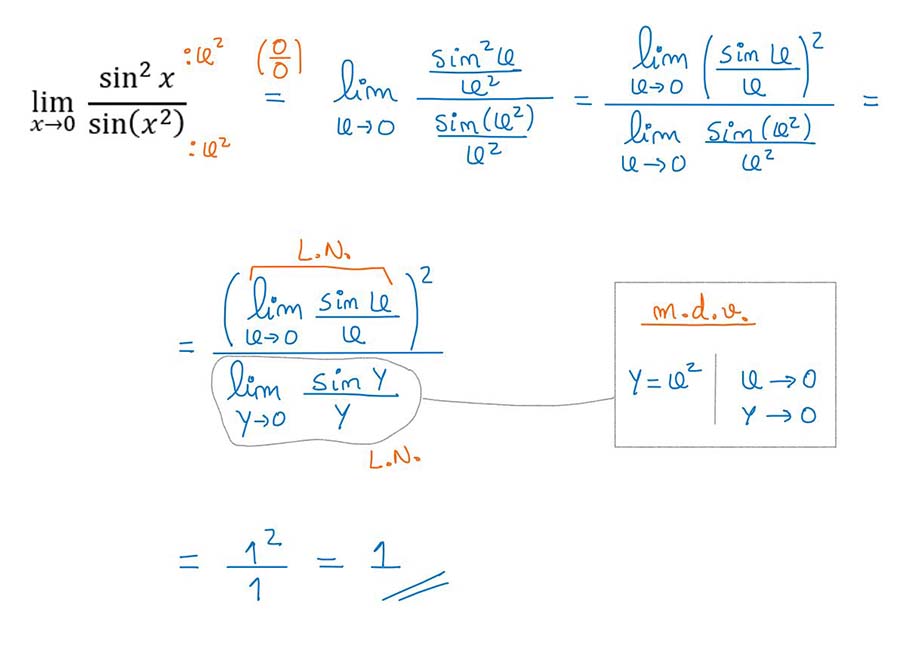 lim x→0 sin² x / sin(x²) :x² :x² (0/0) = lim x→0 (sin²x / x²) / (sin(x²) / x²) = lim x→0 (sin x / x)² / lim x→0 sin(x²) / x² =
L.N.
= (lim x→0 sin x / x)² / lim Y→0 sin Y / Y
L.N.
m.d.v.
Y = x² | x → 0
Y → 0
= 1² / 1 = 1